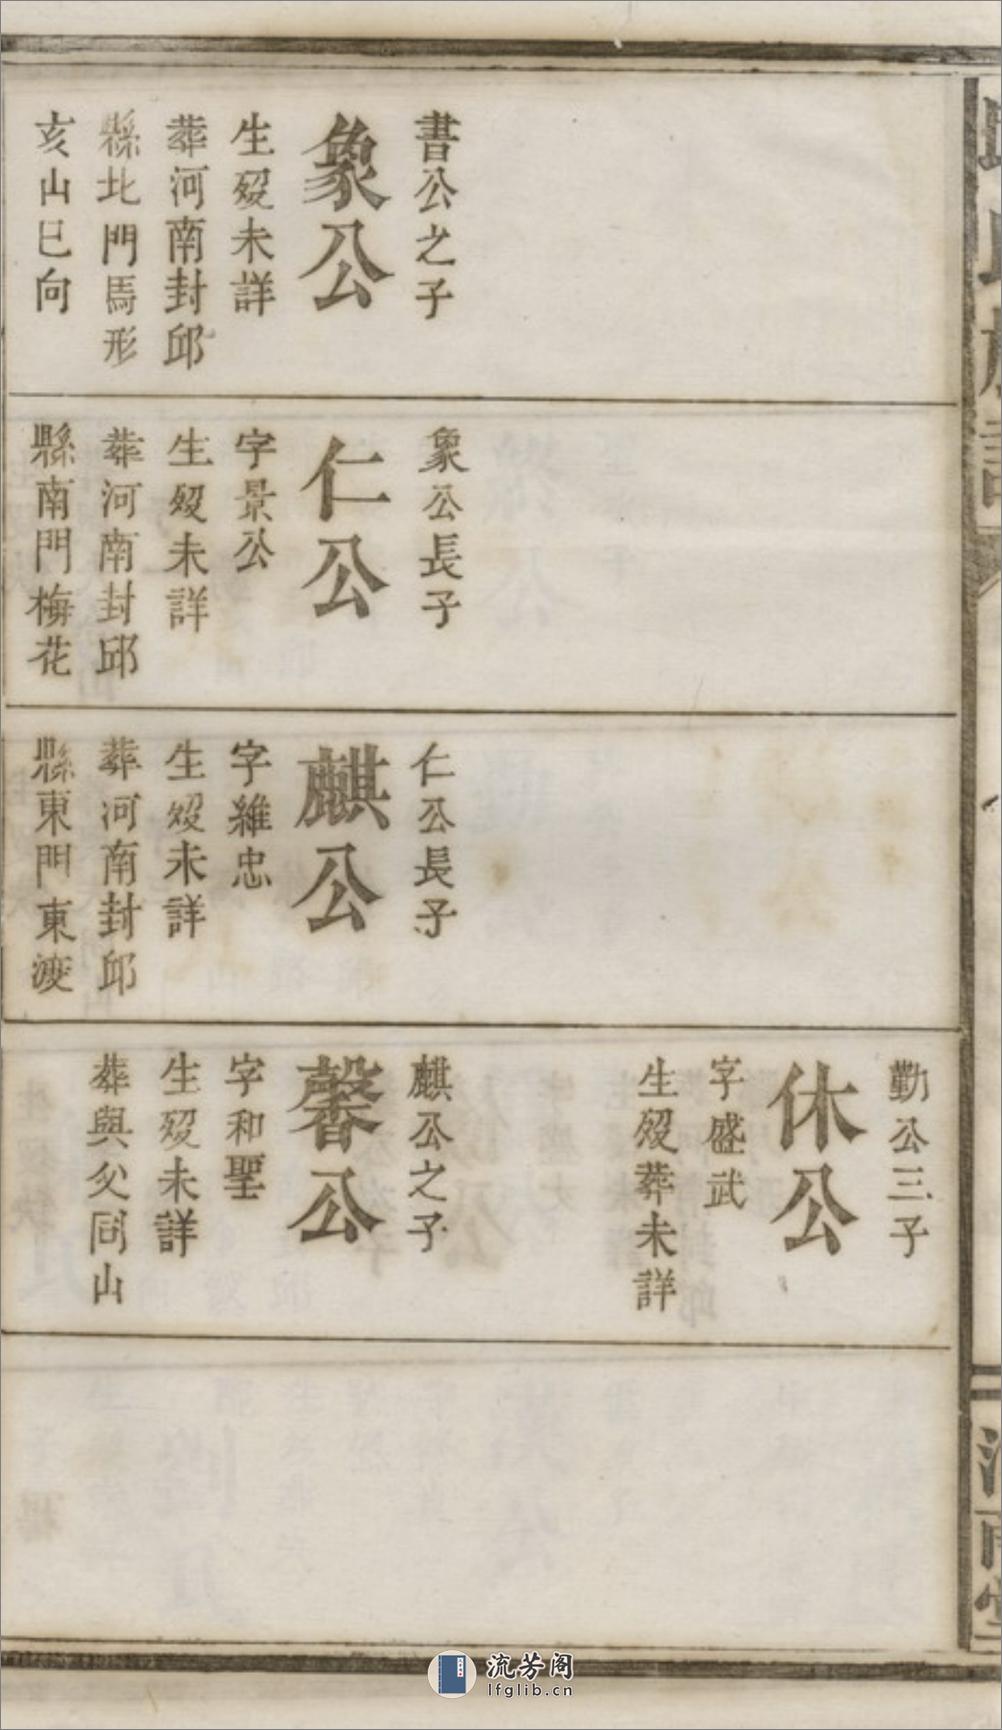 書公之子
象公
生歿未詳
葬河南封邱
縣北門馬形
亥山巳向
象公長子
仁公
字景公
生歿未詳
葬河南封邱
縣南門梅花
仁公長子
麒公
字維忠
生歿未詳
葬河南封邱
縣東門東渡
勤公三子
休公
字盛武
生歿葬未詳
麒公之子
馨公
字和聖
生歿未詳
葬與父同山
流芳阁
lfglib.cn